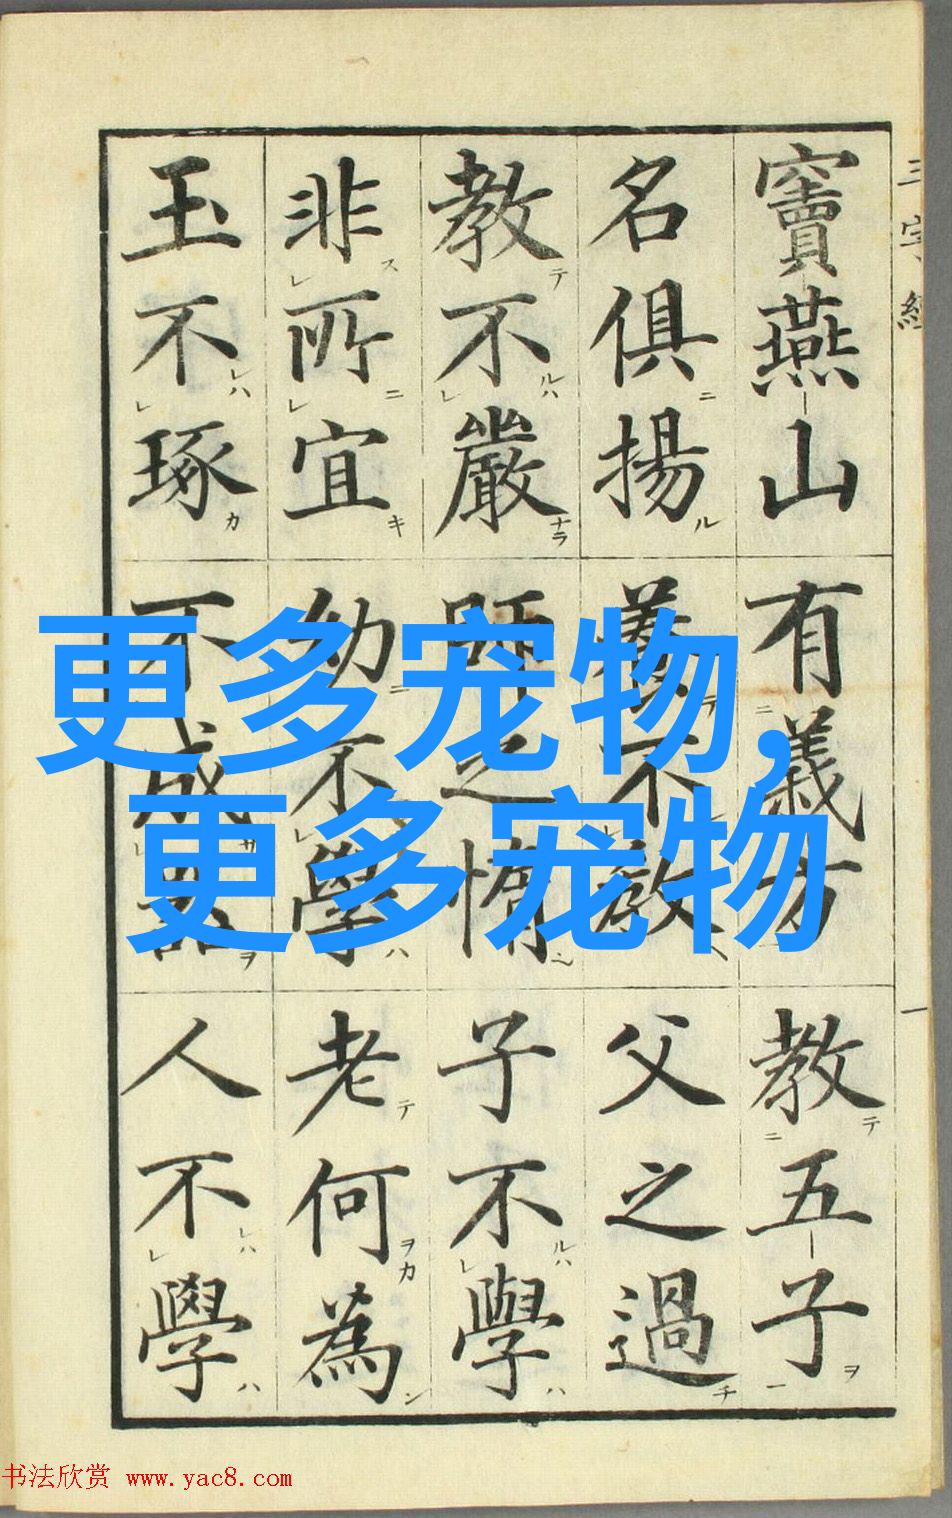 三字經
一
竇燕山有義方教五子
名俱揚養不教父之過
教不嚴師之惰子不學
非所宜幼不學老何為
玉不琢不成器人不學
更多宠物,
更多宠物
书法欣赏 www.yac8.com